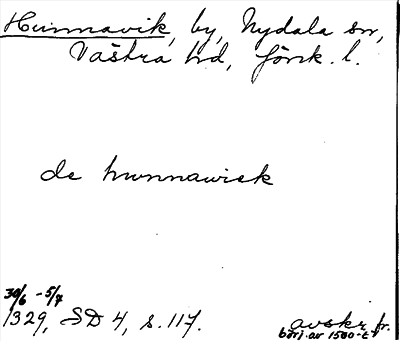 Hunnavik, by, Nydala sn,
Västra hd, Jönk. l.
de hwnnawiek
30/6 - 5/7
1329, SD 4, s. 117.
avskr. fr.
börj. av 1500-t.